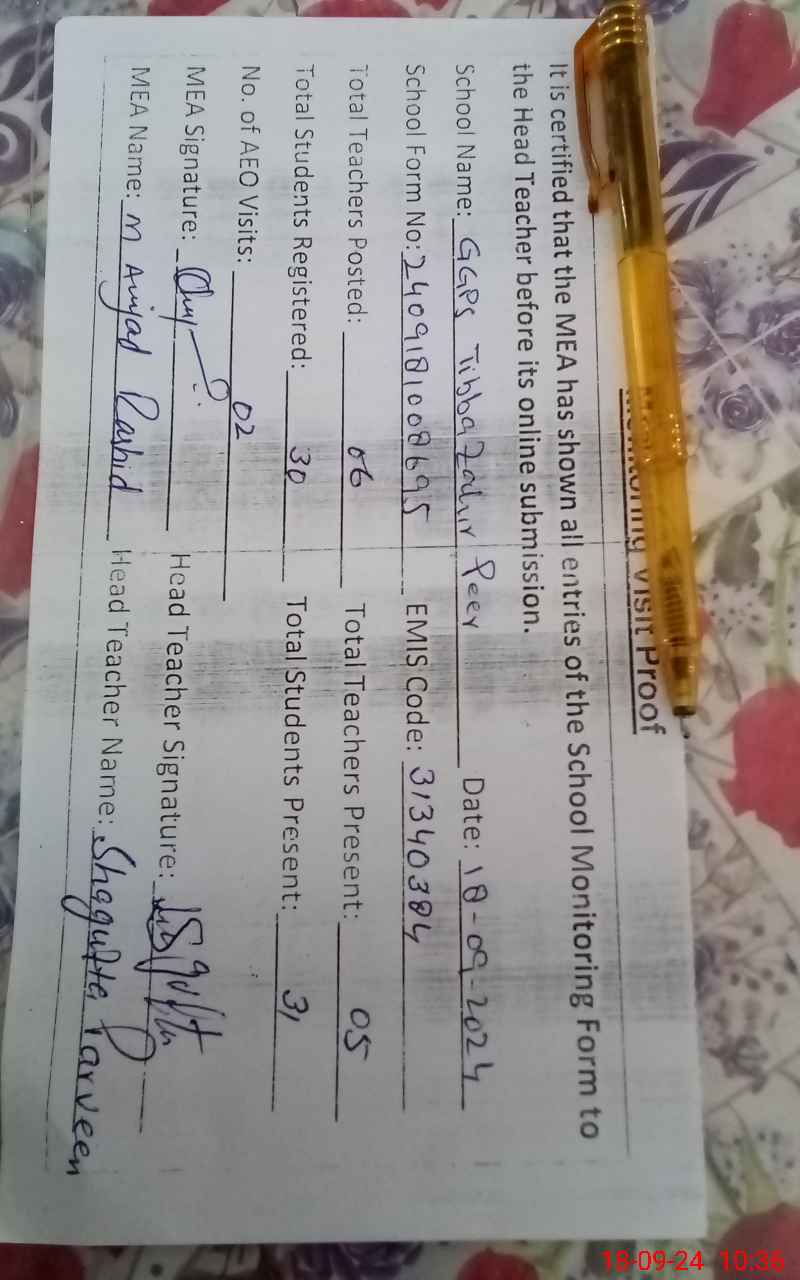 Monitoring Visit Proof
It is certified that the MEA has shown all entries of the School Monitoring Form to
the Head Teacher before its online submission.
School Name: GGPS Tibba Zahir Peer Date: 18-09-2024
School Form No: 2409181008695 EMIS Code: 31340384
Total Teachers Posted: 06 Total Teachers Present: 05
Total Students Registered: 30 Total Students Present: 31
No. of AEO Visits: 02
MEA Signature: Head Teacher Signature:
MEA Name: M Amjad Rashid Head Teacher Name: Shagufta Parveen
18-09-24 10:36